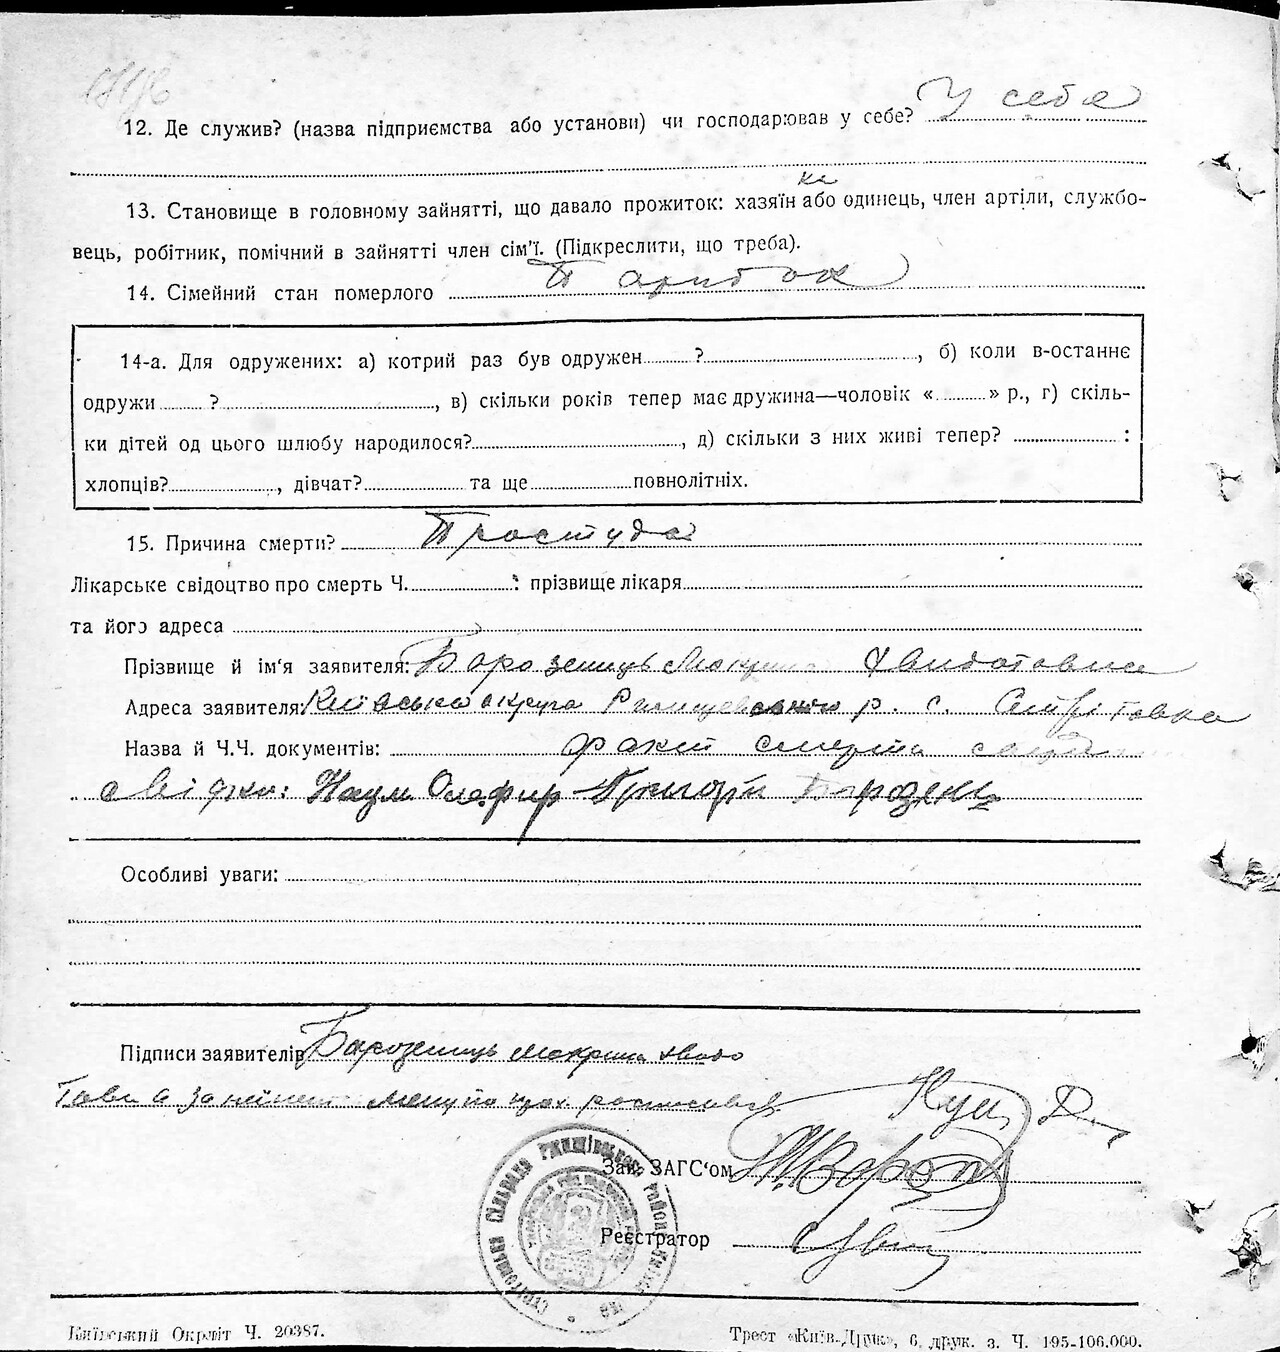 12. Де служив? (назва підприємства або установи) чи господарював у себе? У себе
ка
13. Становище в головному зайнятті, що давало прожиток: хазяїн або одинець, член артіли, службо-
вець, робітник, помічний в зайнятті член сім'ї. (Підкреслити, що треба).
14. Сімейний стан померлого Парубок
14-а. Для одружених: а) котрий раз був одружен ? , б) коли в-останнє
одружи ? , в) скільки років тепер має дружина—чоловік « » р., г) скіль-
ки дітей од цього шлюбу народилося? , д) скільки з них живі тепер? :
хлопців? , дівчат? та ще повнолітніх.
15. Причина смерти? Простуда
Лікарське свідоцтво про смерть Ч. : прізвище лікаря
та його адреса
Прізвище й ім'я заявителя: Мокрина
Адреса заявителя: Київська округа р. с. Стрітовка
Назва й Ч.Ч. документів: факт смерти
свідки: Наум Олефир Григорій
Особливі уваги:
Підписи заявителів Мокрина
Зав. ЗАГС'ом
Реєстратор
Київський Окрліт Ч. 20387.
Трест «Київ-Друк», 6 друк. з. Ч. 195-106.000.